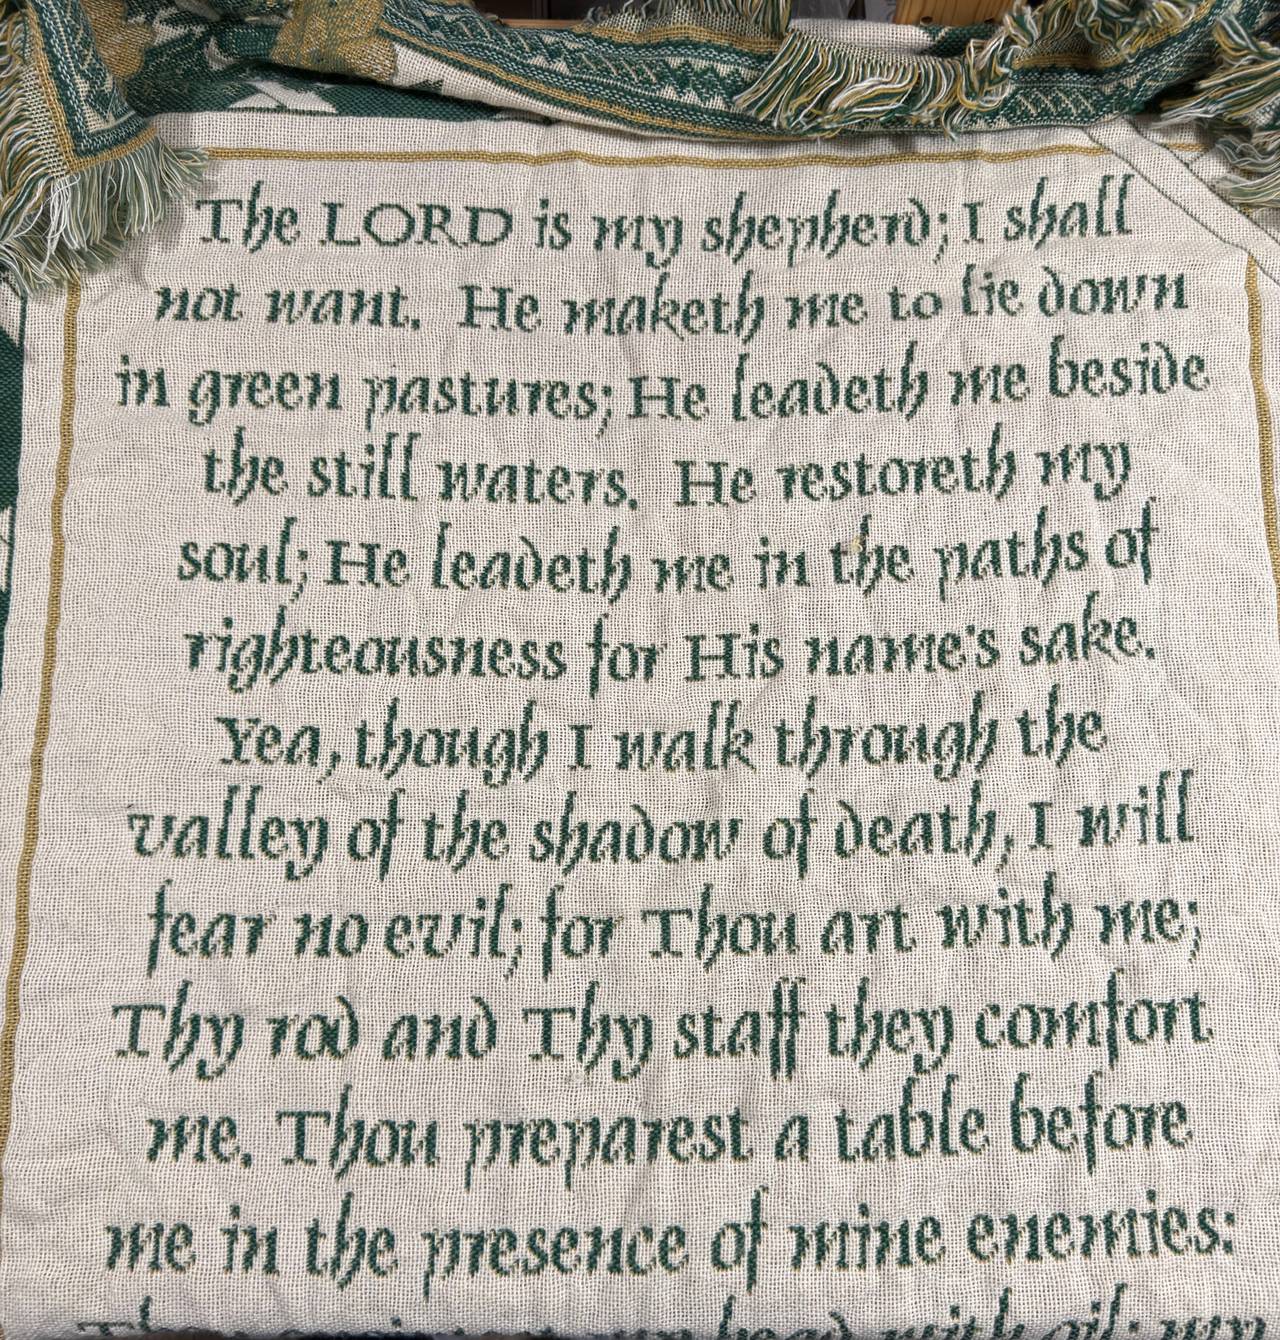 The LORD is my shepherd; I shall
not want. He maketh me to lie down
in green pastures; He leadeth me beside
the still waters. He restoreth my
soul; He leadeth me in the paths of
righteousness for His name's sake.
Yea, though I walk through the
valley of the shadow of death, I will
fear no evil; for Thou art with me;
Thy rod and Thy staff they comfort
me. Thou preparest a table before
me in the presence of mine enemies:
head with oil; my